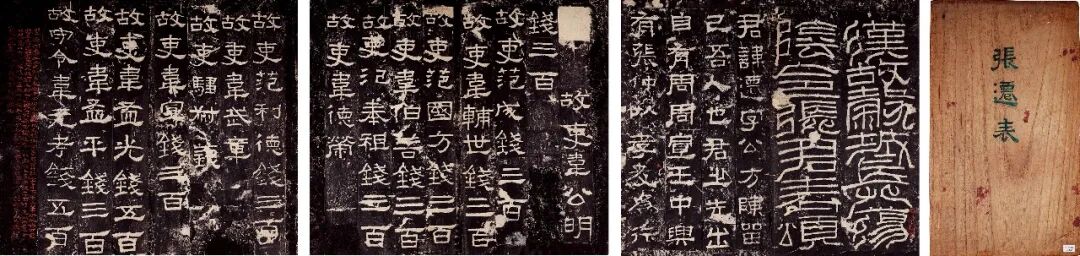 張遷表
漢故穀城長蕩
陰令張君表頌
君諱遷字公方陳留
己吾人也君之先出
自有周周宣王中興
有張仲以孝友為行
故吏韋公明
錢三百
故吏范成錢二百
故吏韋輔世錢二百
故吏范國方錢三百
故吏韋伯善錢三百
故吏氾奉祖錢三百
故吏韋德榮
故吏范利德錢三百
故吏韋武章
故吏騶叔義
故吏韋宣錢三百
故吏韋孟光錢五百
故吏韋孟平錢三百
故守令韋元考錢五百